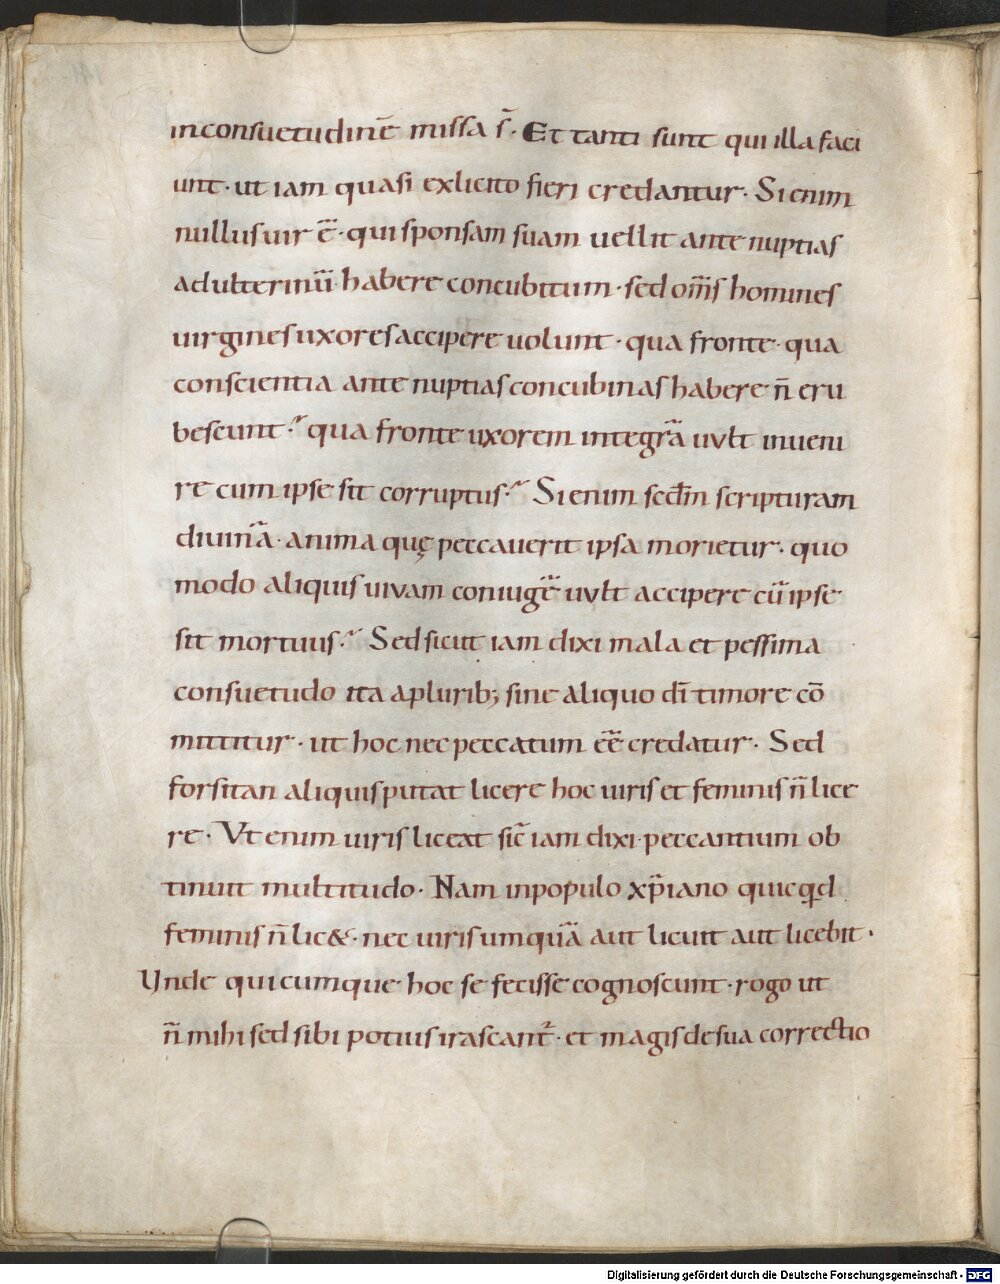 inconsuetudinē missa s̄. Et tanti sunt qui illa faci
unt. ut iam quasi exlicito fieri credantur. Si enim
nullus uir ē. qui sponsam suam uellit ante nuptias
adulterinū habere concubitum. sed om̄s homines
uirgines uxores accipere uolunt. qua fronte. qua
conscientia ante nuptias concubinas habere n̄ eru
bescunt? qua fronte uxorem integrā uult inueni
re cum ipse sit corruptus? Si enim secdm̄ scripturam
diuinā. anima quę peccauerit ipsa morietur. quo
modo aliquis uiuam coniugē uult accipere cū ipse
sit mortuus? Sed sicut iam dixi mala et pessima
consuetudo ita a plurib; sine aliquo dī timore cō
mittitur. ut hoc nec peccatum eē credatur. Sed
forsitan aliquis putat licere hoc uiris et feminis n̄ lice
re. Ut enim uiris liceat sic̄ iam dixi. peccantium ob
tinuit multitudo. Nam inpopulo xp̄iano quicqd
feminis n̄ lic&. nec uiris umquā aut licuit aut licebit.
Unde quicumque hoc se fecisse cognoscunt. rogo ut
n̄ mihi sed sibi potius irascant̄. et magis de sua correctio
Digitalisierung gefördert durch die Deutsche Forschungsgemeinschaft - DFG